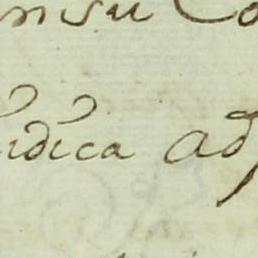 nsu Co
idica ad